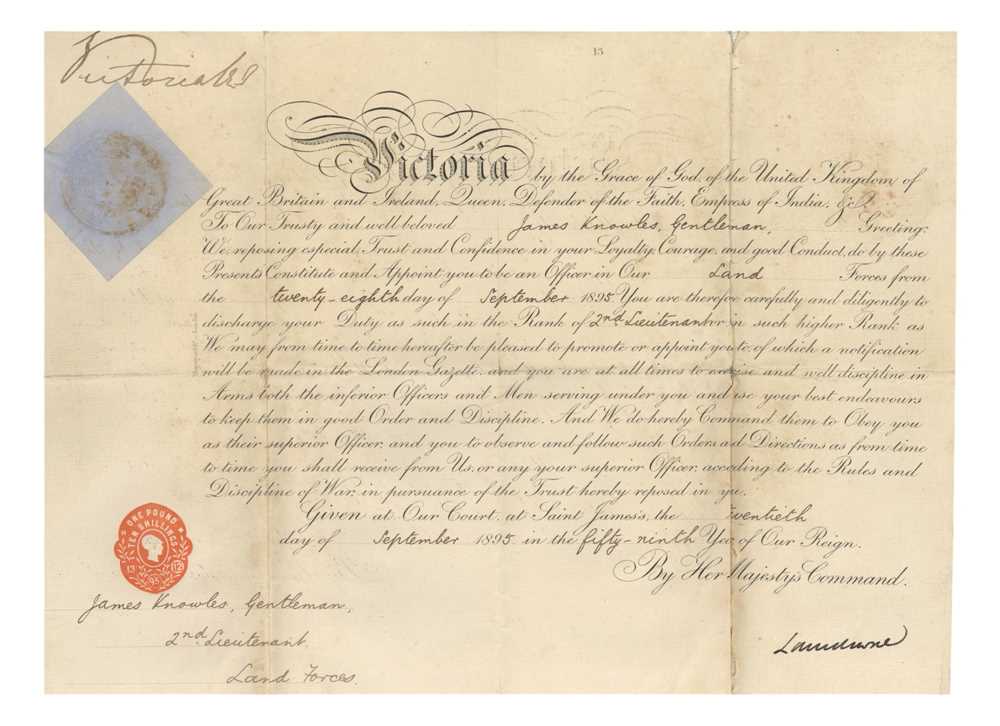 Victoria R I
15
Victoria by the Grace of God, of the United Kingdom of
Great Britain and Ireland, Queen, Defender of the Faith, Empress of India, &c.
To Our Trusty and well beloved James Knowles, Gentleman, Greeting:
We, reposing especial Trust and Confidence in your Loyalty, Courage, and good Conduct, do by these
Presents Constitute and Appoint you to be an Officer in Our Land Forces from
the twenty-eighth day of September 1895. You are therefore carefully and diligently to
discharge your Duty as such in the Rank of 2nd Lieutenant or in such higher Rank as
We may from time to time hereafter be pleased to promote or appoint you to, of which a notification
will be made in the London Gazette, and you are at all times to exercise and well discipline in
Arms both the inferior Officers and Men serving under you and use your best endeavours
to keep them in good Order and Discipline. And We do hereby Command them to Obey you
as their superior Officer, and you to observe and follow such Orders and Directions as from time
to time you shall receive from Us, or any your superior Officer, according to the Rules and
Discipline of War, in pursuance of the Trust hereby reposed in you.
Given at Our Court, at Saint James's, the Twentieth
day of September 1895 in the fifty-ninth Year of Our Reign.
By Her Majesty's Command.
ONE POUND
TEN SHILLINGS
13 95 12
James Knowles, Gentleman,
2nd Lieutenant
Land Forces.
Lansdowne